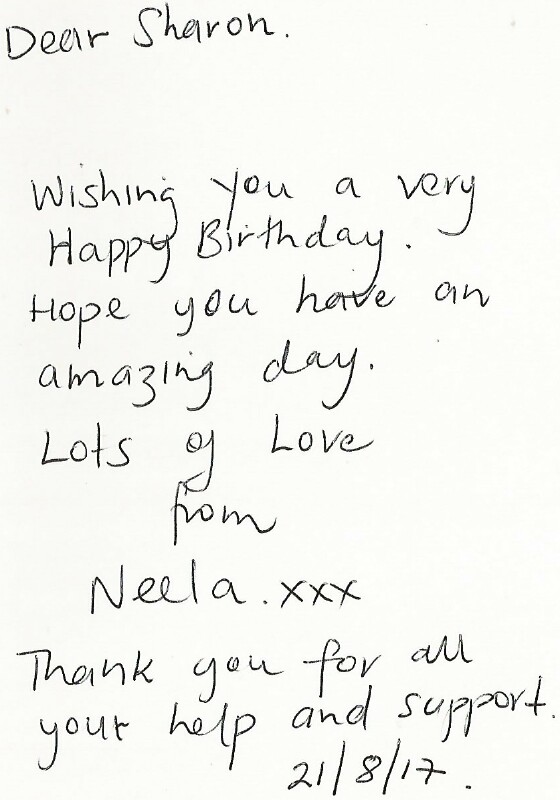 Dear Sharon.
Wishing you a very
Happy Birthday.
Hope you have an
amazing day.
Lots of Love
from
Neela.xxx
Thank you for all
your help and support.
21/8/17.